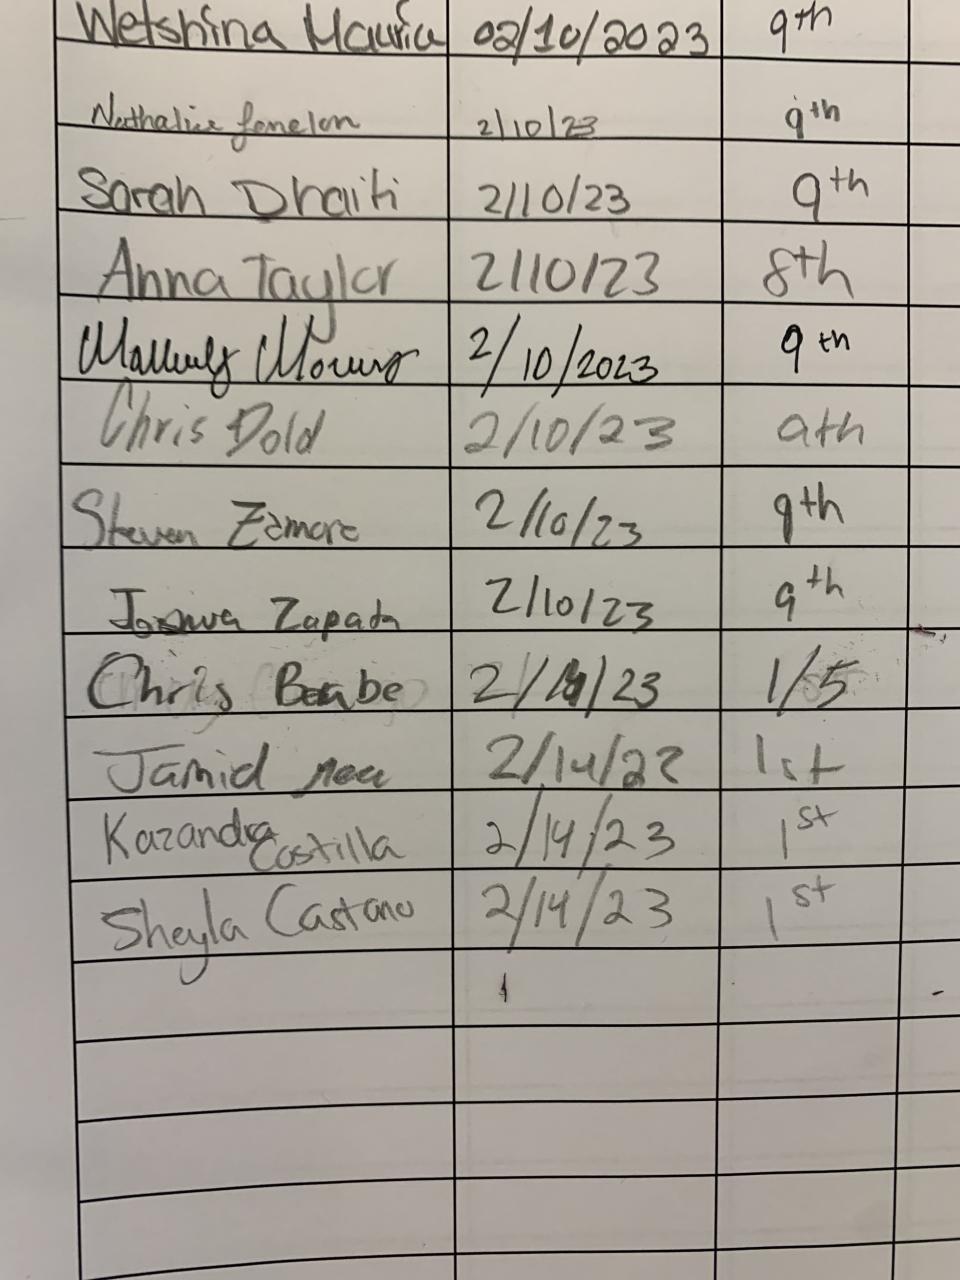 Wetshina Mauria 02/10/2023 9th
Nathalie fenelon 2/10/23 9th
Sarah Dhaiti 2/10/23 9th
Anna Taylor 2/10/23 8th
2/10/2023 9th
Chris Dold 2/10/23 9th
Steven Zamora 2/10/23 9th
Joshua Zapata 2/10/23 9th
Chris 2/14/23 1/5
Jamid 2/14/22 1st
Kazandra Costilla 2/14/23 1st
Sheyla Castano 2/14/23 1st